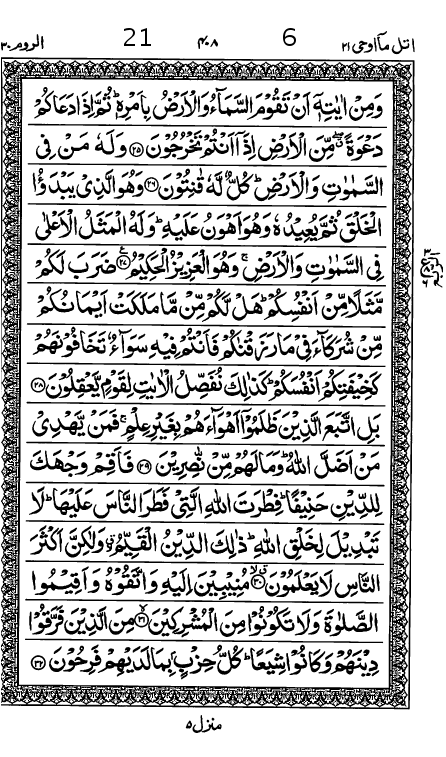 اتل مآاوحی ۲۱ 6 ۴۰۸ 21 الروم ۳۰
وَمِنْ اٰیٰتِهٖۤ اَنْ تَقُوْمَ السَّمَآءُ وَالْاَرْضُ بِاَمْرِهٖؕ ثُمَّ اِذَا دَعَاكُمْ
دَعْوَةً ۖۗ مِّنَ الْاَرْضِ اِذَاۤ اَنْتُمْ تَخْرُجُوْنَ ﴿۲۵﴾ وَلَهٗ مَنْ فِی
السَّمٰوٰتِ وَالْاَرْضِؕ كُلٌّ لَّهٗ قٰنِتُوْنَ ﴿۲۶﴾ وَهُوَ الَّذِیْ یَبْدَؤُا
الْخَلْقَ ثُمَّ یُعِیْدُهٗ وَهُوَ اَهْوَنُ عَلَیْهِؕ وَلَهُ الْمَثَلُ الْاَعْلٰی
فِی السَّمٰوٰتِ وَالْاَرْضِۚ وَهُوَ الْعَزِیْزُ الْحَكِیْمُ ﴿۲۷﴾ ضَرَبَ لَكُمْ
مَّثَلًا مِّنْ اَنْفُسِكُمْؕ هَلْ لَّكُمْ مِّنْ مَّا مَلَكَتْ اَیْمَانُكُمْ
مِّنْ شُرَكَآءَ فِیْ مَا رَزَقْنٰكُمْ فَاَنْتُمْ فِیْهِ سَوَآءٌ تَخَافُوْنَهُمْ
كَخِیْفَتِكُمْ اَنْفُسَكُمْؕ كَذٰلِكَ نُفَصِّلُ الْاٰیٰتِ لِقَوْمٍ یَّعْقِلُوْنَ ﴿۲۸﴾
بَلِ اتَّبَعَ الَّذِیْنَ ظَلَمُوْۤا اَهْوَآءَهُمْ بِغَیْرِ عِلْمٍۚ فَمَنْ یَّهْدِیْ
مَنْ اَضَلَّ اللّٰهُؕ وَمَا لَهُمْ مِّنْ نّٰصِرِیْنَ ﴿۲۹﴾ فَاَقِمْ وَجْهَكَ
لِلدِّیْنِ حَنِیْفًاؕ فِطْرَتَ اللّٰهِ الَّتِیْ فَطَرَ النَّاسَ عَلَیْهَاؕ لَا
تَبْدِیْلَ لِخَلْقِ اللّٰهِؕ ذٰلِكَ الدِّیْنُ الْقَیِّمُۙ وَلٰكِنَّ اَكْثَرَ
النَّاسِ لَا یَعْلَمُوْنَ ﴿۳۰﴾ مُنِیْبِیْنَ اِلَیْهِ وَاتَّقُوْهُ وَاَقِیْمُوا
الصَّلٰوةَ وَلَا تَكُوْنُوْا مِنَ الْمُشْرِكِیْنَ ﴿۳۱﴾ مِنَ الَّذِیْنَ فَرَّقُوْا
دِیْنَهُمْ وَكَانُوْا شِیَعًاؕ كُلُّ حِزْبٍۭ بِمَا لَدَیْهِمْ فَرِحُوْنَ ﴿۳۲﴾
منزل ۵